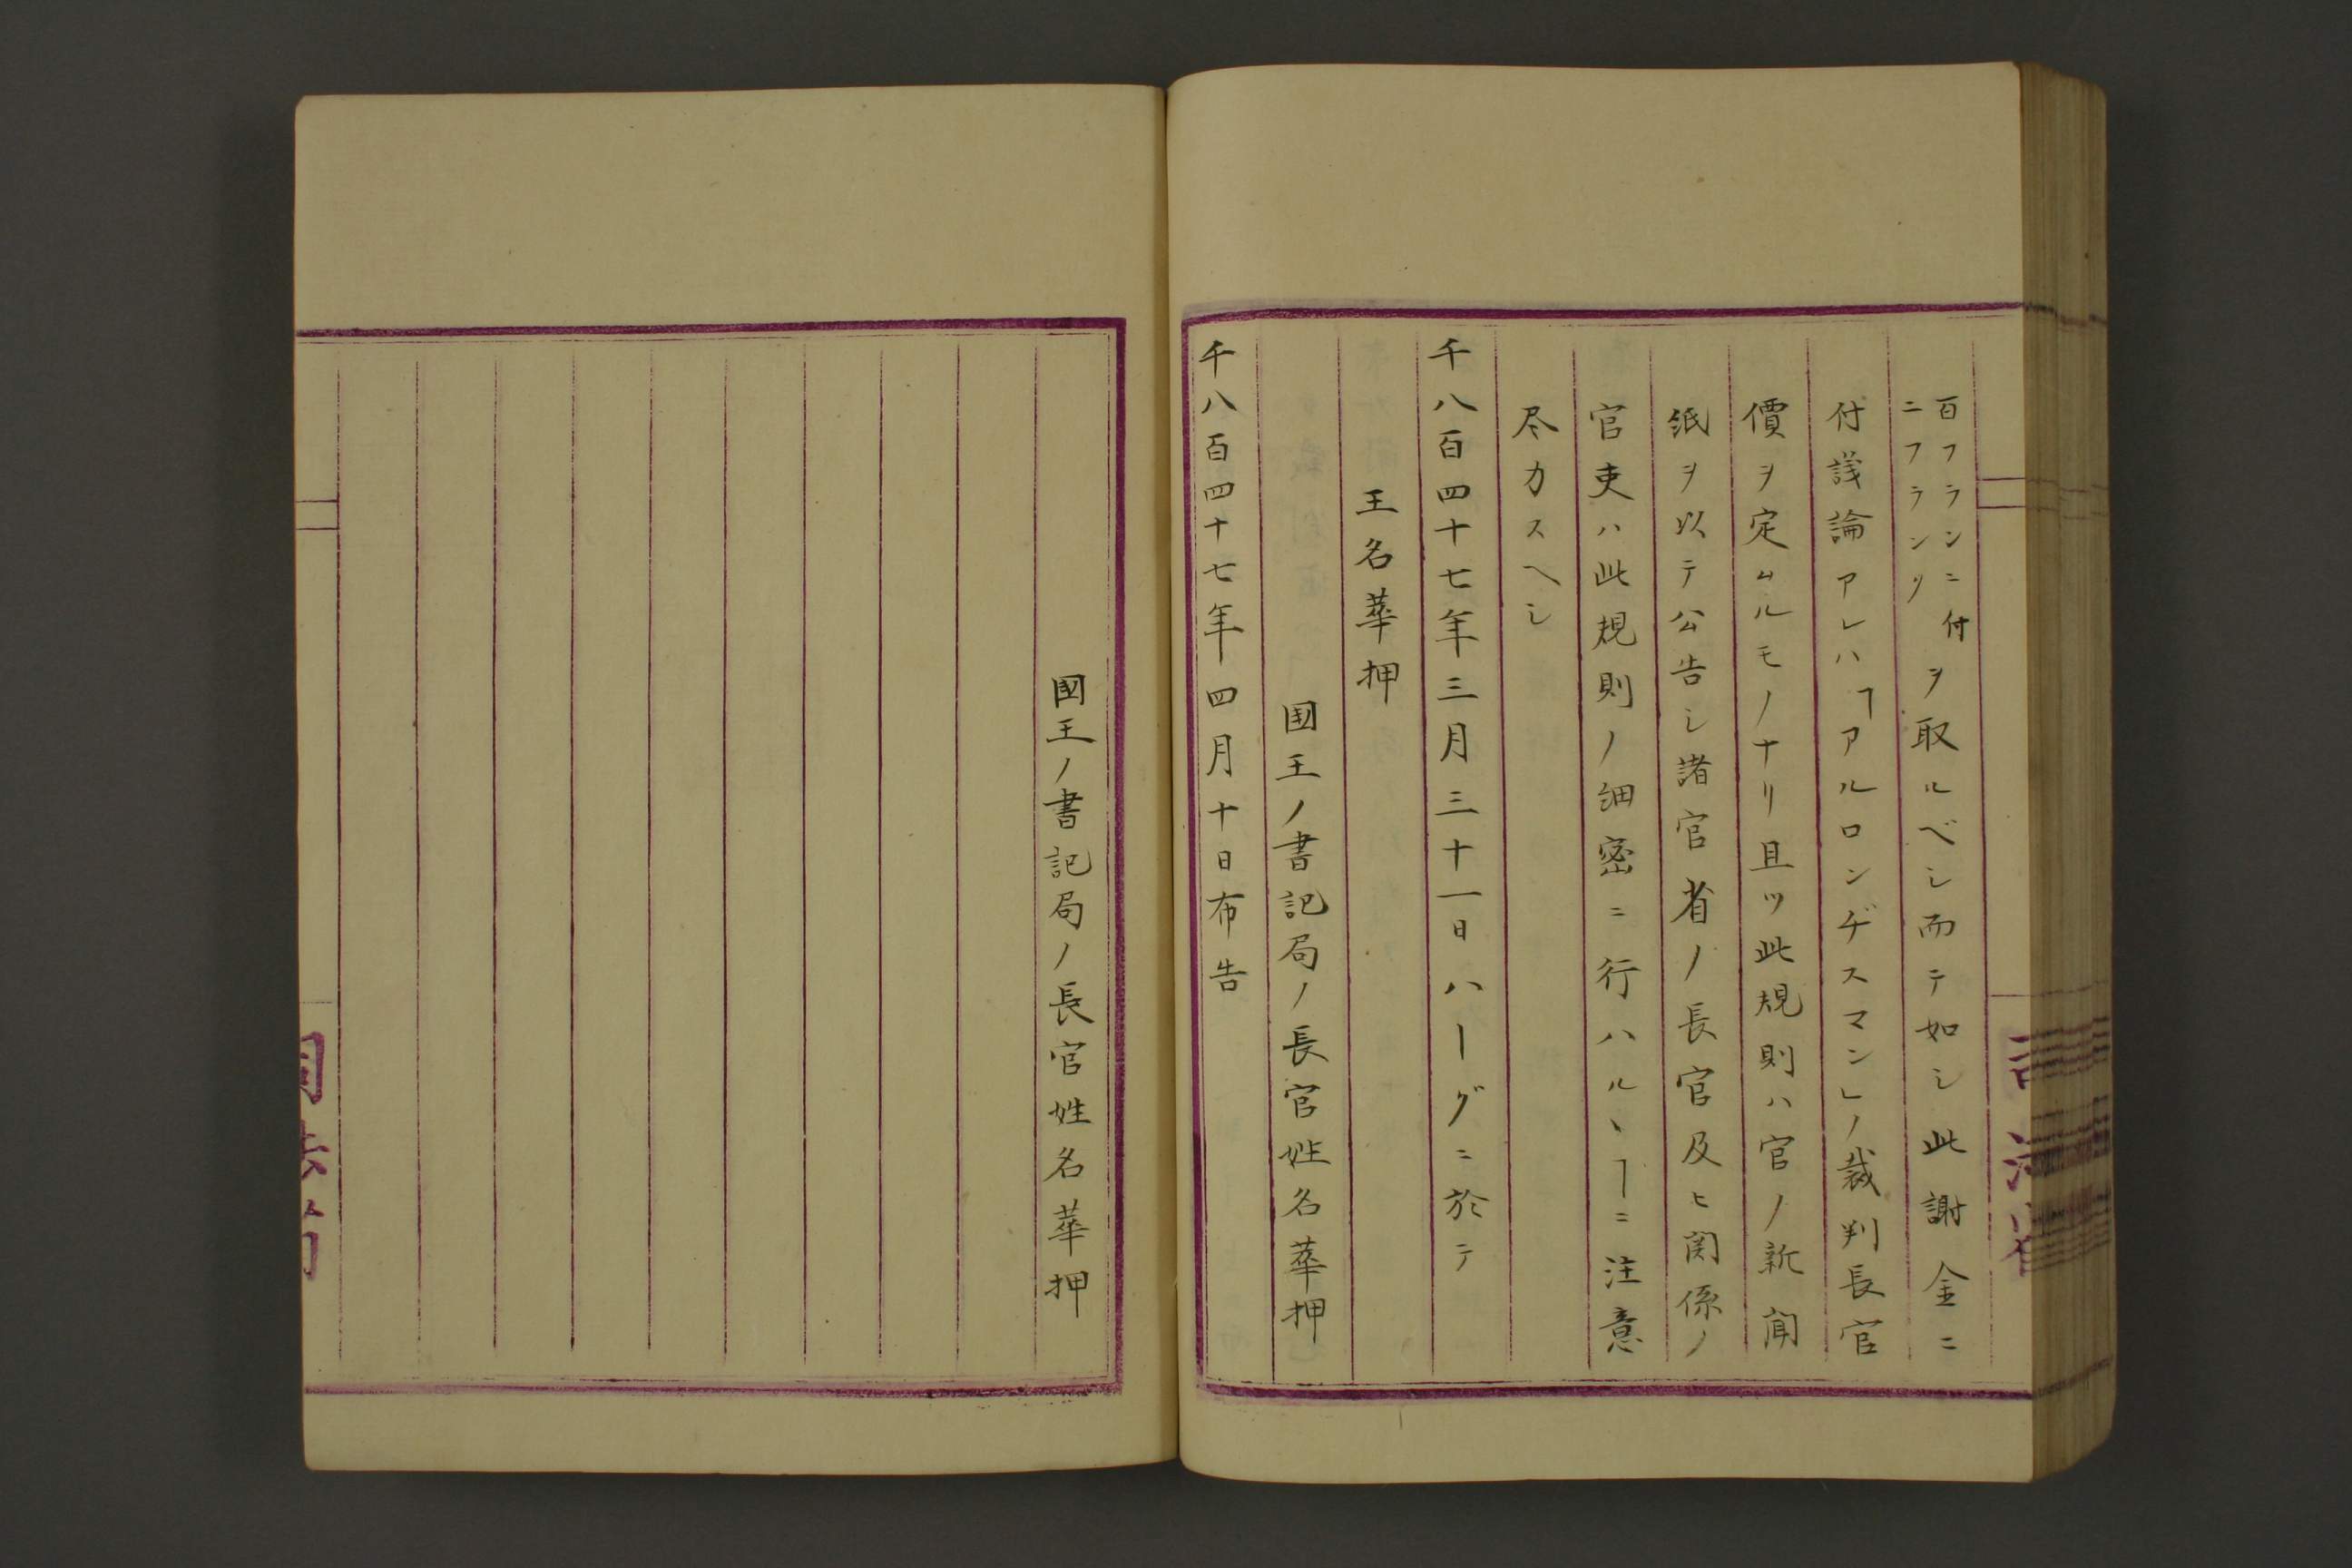 百フランニ付
ニフランヲ取ルベシ而テ如シ此謝金ニ
付議論アレハ「アルロンヂスマン」ノ裁判長官
價ヲ定ムルモノナリ且ツ此規則ハ官ノ新聞
紙ヲ以テ公告シ諸官省ノ長官及ヒ関係ノ
官吏ハ此規則ノ細密ニ行ハルヽヿニ注意
尽力スヘシ
千八百四十七年三月三十一日ハーグニ於テ
王名華押
国王ノ書記局ノ長官姓名華押
千八百四十七年四月十日布告
國王ノ書記局ノ長官姓名華押